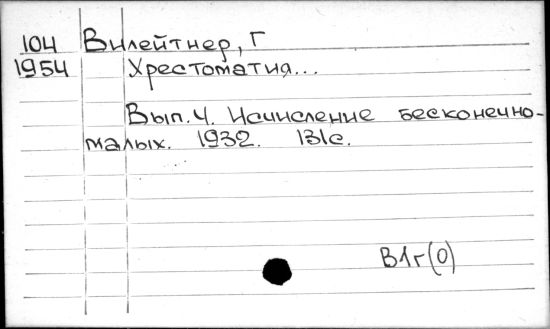 104 Вилейтнер, Г
1954 Хрестоматия...
Вып. 4. Исчисление бесконечно-
малых. 1932. 131с.
В1г(0)